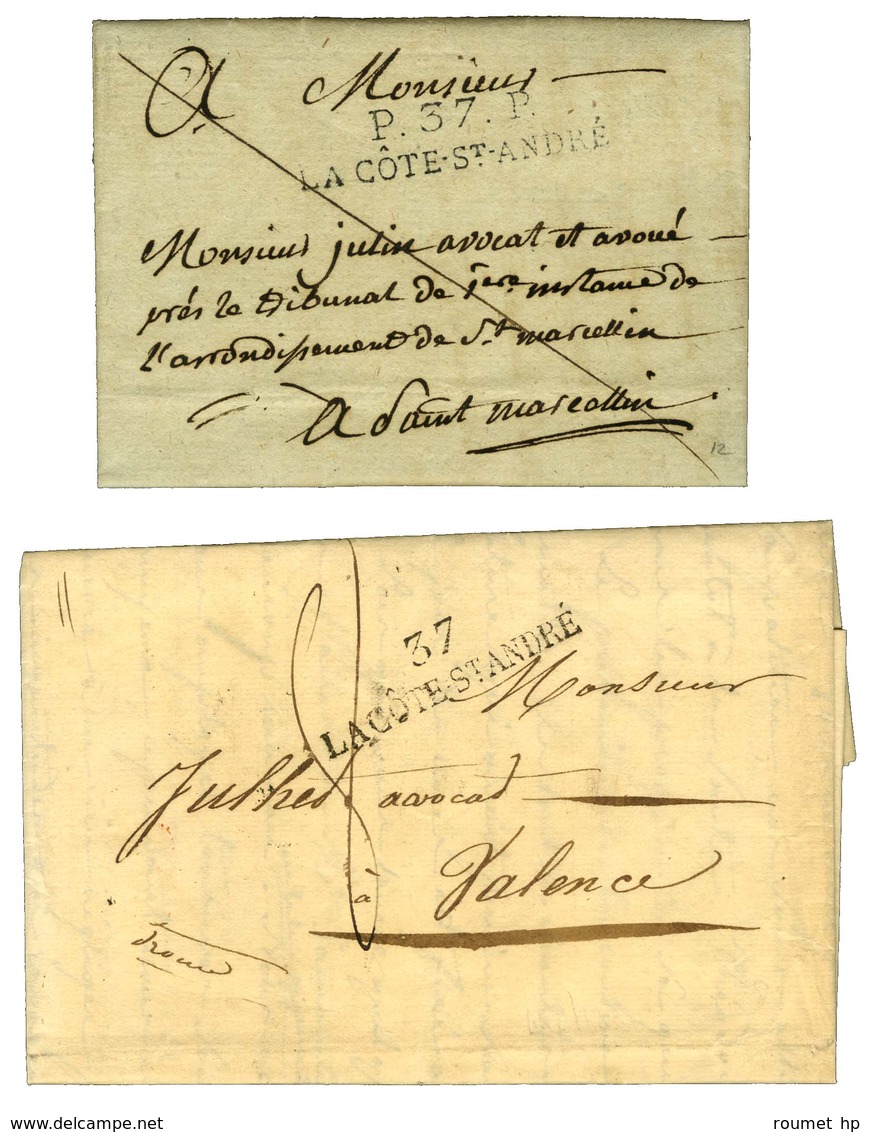 A Monsieur
P. 37. P.
LA CÔTE-ST-ANDRÉ
Monsieur julin avocat et avoué
prés le tribunal de 1ere instance de
l'arrondissement de St marcellin
A Saint marcellin
12
37
LA CÔTE-ST ANDRÉ
Monsieur
Julhet avocat
à Valence
Drome
www.delcampe.net
roumet hp